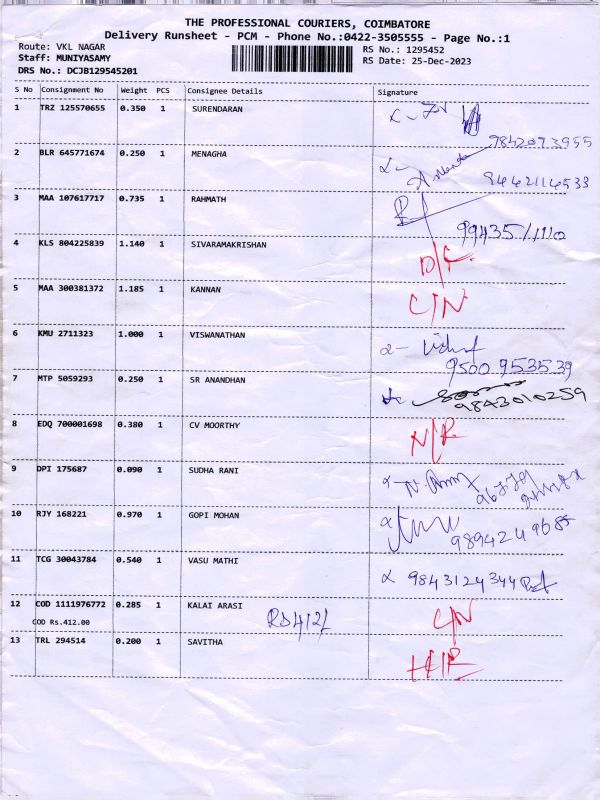 THE PROFESSIONAL COURIERS, COIMBATORE
Delivery Runsheet - PCM - Phone No.:0422-3505555 - Page No.:1
Route: VKL NAGAR
RS No.: 1295452
Staff: MUNIYASAMY
RS Date: 25-Dec-2023
DRS No.: DCJB129545201
S No Consignment No Weight PCS Consignee Details Signature
1 TRZ 125570655 0.350 1 SURENDARAN
9842073955
2 BLR 645771674 0.250 1 MENAGHA
9442114533
3 MAA 107617717 0.735 1 RAHMATH
99435/1110
4 KLS 804225839 1.140 1 SIVARAMAKRISHAN
D/C
5 MAA 300381372 1.185 1 KANNAN C/N
6 KMU 2711323 1.000 1 VISWANATHAN
9500 953539
7 MTP 5059293 0.250 1 SR ANANDHAN
9843010259
8 EDQ 700001698 0.380 1 CV MOORTHY N/R
9 DPI 175687 0.090 1 SUDHA RANI
10 RJY 168221 0.970 1 GOPI MOHAN
9894249685
11 TCG 30043784 0.540 1 VASU MATHI
9843124344
12 COD 1111976772 0.285 1 KALAI ARASI C/N
COD Rs.412.00 RS 412/
13 TRL 294514 0.200 1 SAVITHA